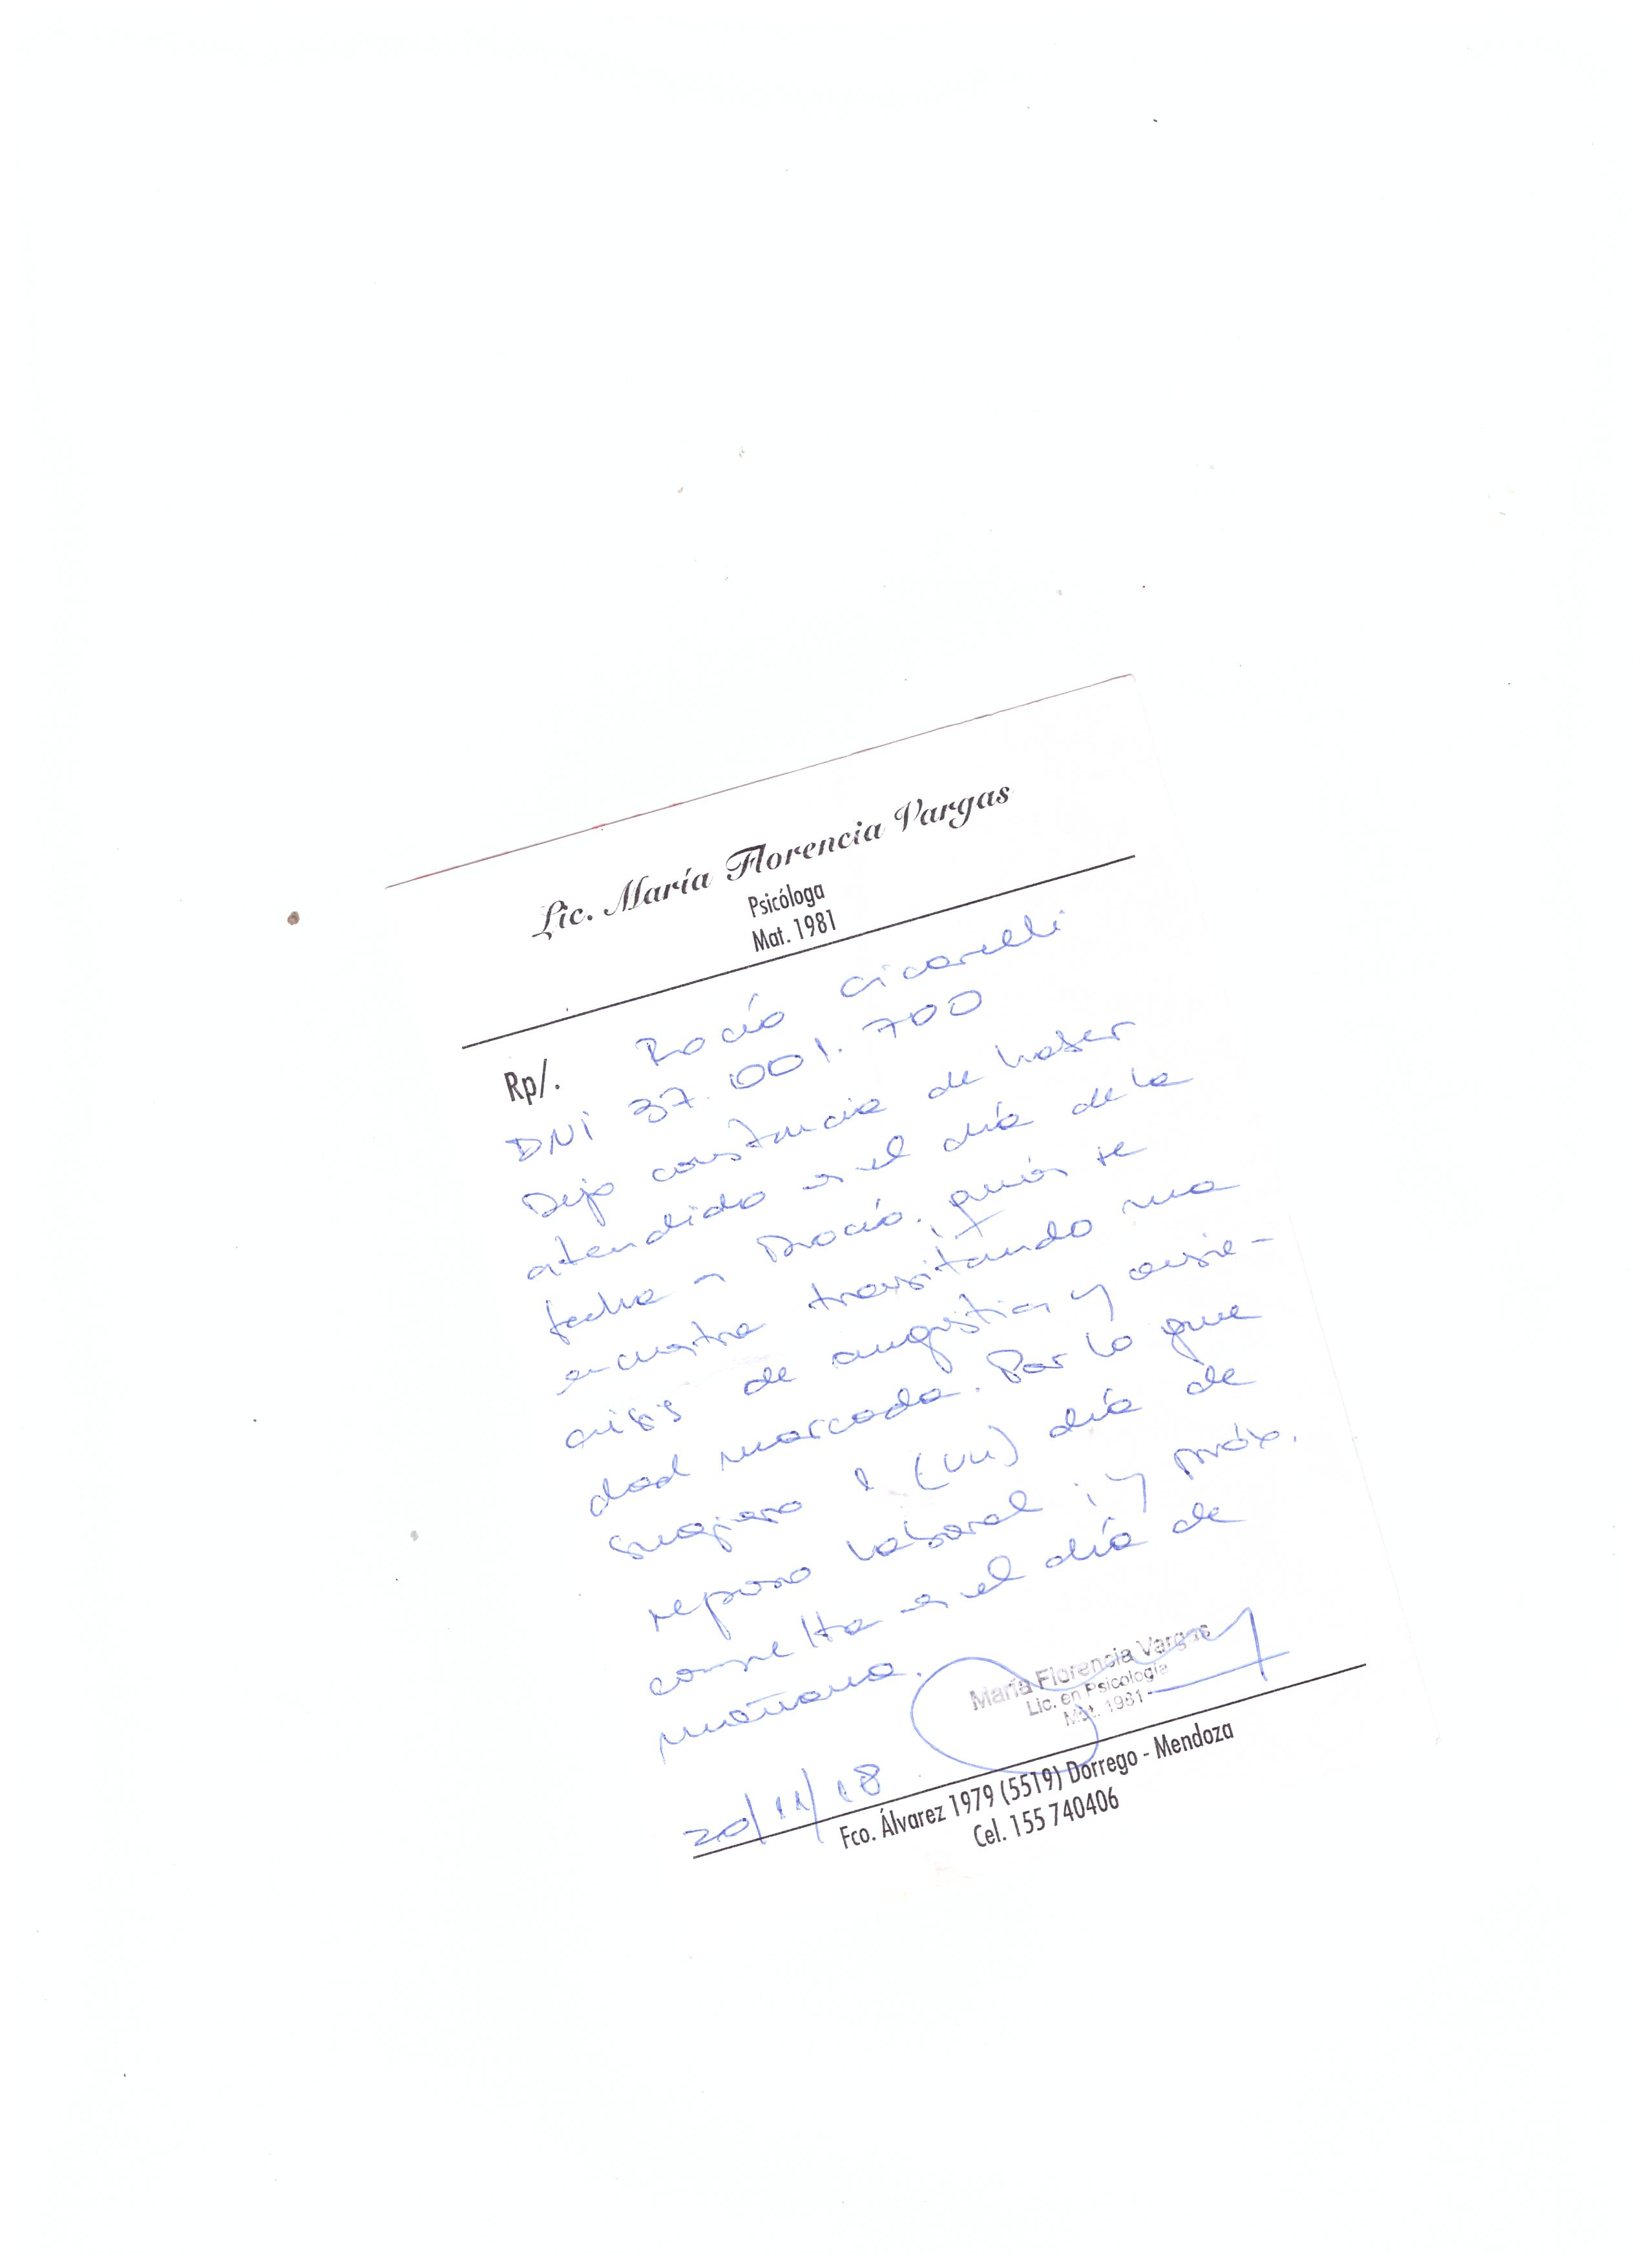 Lic. María Florencia Vargas
Psicóloga
Mat. 1981
Rp/. Rocío Cicarelli
DNI 37.001.700
Dejo constancia de haber
atendido en el día de la
fecha a Rocío; quién se
encuentra transitando una
crisis de angustia y ansie-
dad marcada. Por lo que
sugiero 1 (un) día de
reposo laboral; y próx.
consulta en el día de
mañana.
María Florencia Vargas
Lic. en Psicología
Mat. 1981
20/11/18
Fco. Álvarez 1979 (5519) Dorrego - Mendoza
Cel. 155 740406